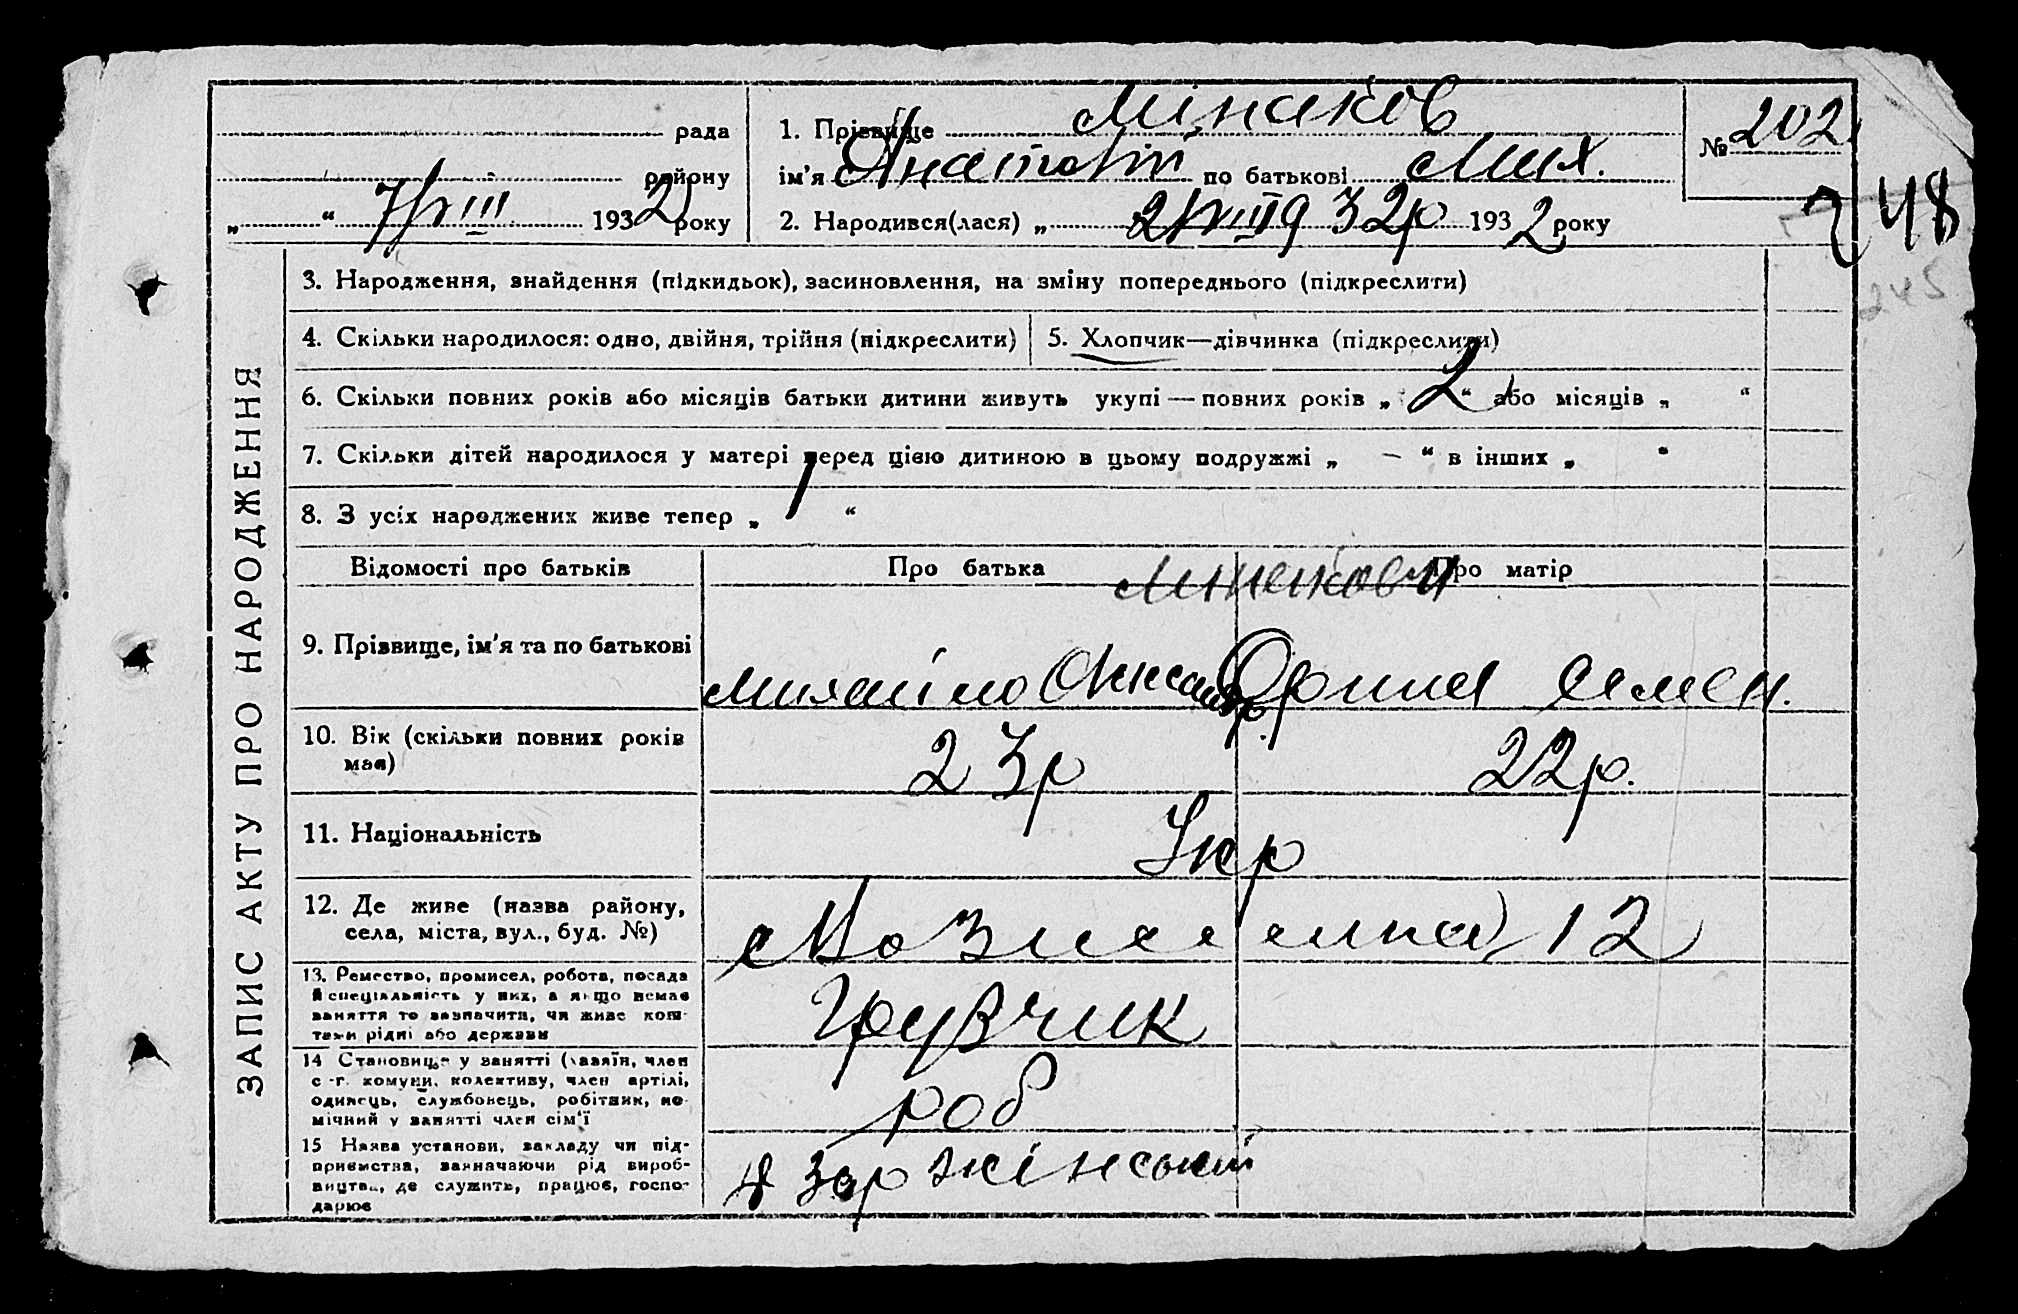 рада
району
„ “ 7/VIII 1932 року
1. Прізвище Мінаков
ім'я Анатолій по батькові Мих.
2. Народився(лася) „ 2/VIII 32р 1932 року
№ 202
248
245
ЗАПИС АКТУ ПРО НАРОДЖЕННЯ
3. Народження, знайдення (підкидьок), засиновлення, на зміну попереднього (підкреслити)
4. Скільки народилося: одно, двійня, трійня (підкреслити)
5. Хлопчик—дівчинка (підкреслити)
6. Скільки повних років або місяців батьки дитини живуть укупі — повних років „ 2 “ або місяців „ “
7. Скільки дітей народилося у матері перед цією дитиною в цьому подружжі „ – “ в інших „ “
8. З усіх народжених живе тепер „ 1 “
Відомості про батьків
Про батька
Про матір
Мінакови
9. Прізвище, ім'я та по батькові
Михайло
Орина Семен.
10. Вік (скільки повних років
має)
23р
22р.
11. Національність
Укр
12. Де живе (назва району,
села, міста, вул., буд. №)
12
13. Ремество, промисел, робота, посада
й спеціяльність у них, а якщо немає
заняття то зазначити, чи живе кош-
тами рідні або держави
Грузчик
14 Становище у занятті (хазяїн, член
с.-г. комуни, колективу, член артілі,
одинець, службовець, робітник, по-
мічний у занятті член сім'ї
роб
15 Назва установи, закладу чи під-
приємства, зазначаючи рід вироб-
ництва, де служить, працює, госпо-
дарює